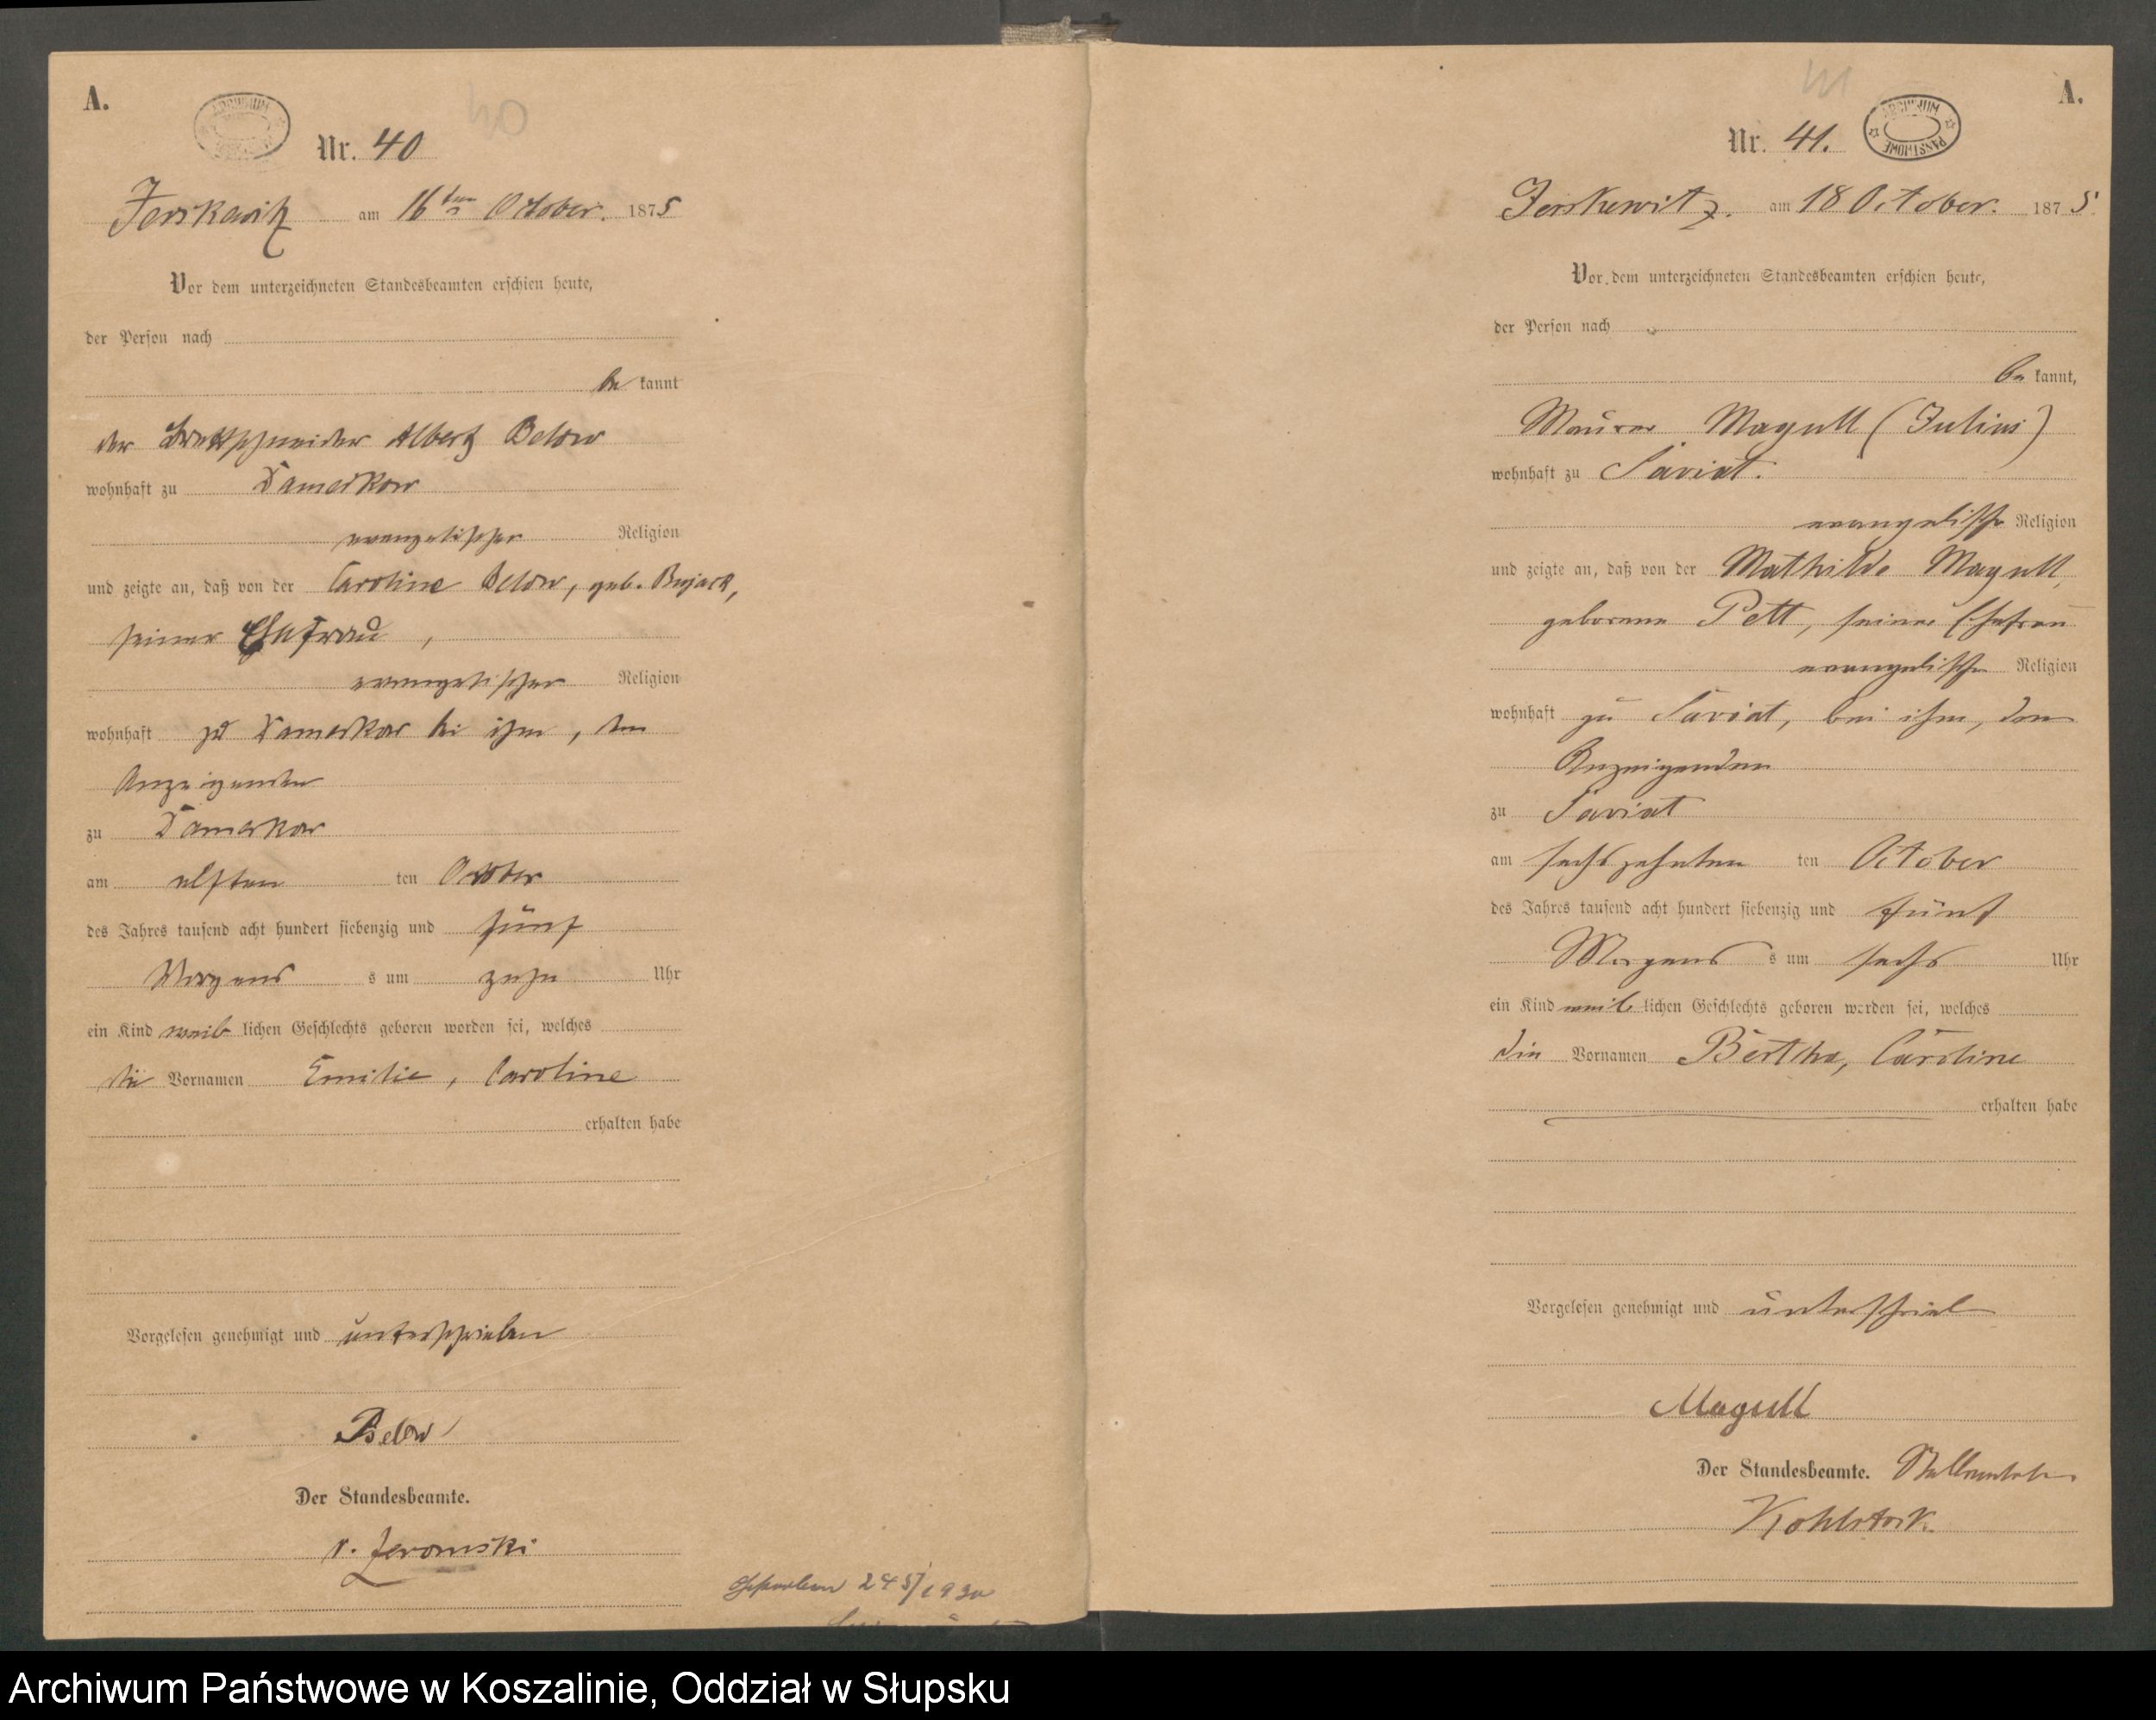 A.
ARCHIWUM
40
Nr. 40
Jerskewitz am 16ten October. 1875
Vor dem unterzeichneten Standesbeamten erschien heute,
der Person nach
be kannt
der Brettschneider Albert Below
wohnhaft zu Damerkow
evangelischer Religion
und zeigte an, daß von der Caroline Below, geb. Bujack,
seiner Ehefrau,
evangelischer Religion
wohnhaft zu Damerkow bei ihm, dem
Anzeigenden
zu Damerkow
am elften ten October
des Jahres tausend acht hundert siebenzig und fünf
Morgens s um zehn Uhr
ein Kind weib lichen Geschlechts geboren worden sei, welches
die Vornamen Emilie, Caroline
erhalten habe
Vorgelesen genehmigt und unterschrieben
Below
Der Standesbeamte.
v. Zeromski
245/1930
A.
41
ARCHIWUM PAŃSTWOWE
Nr. 41.
Jerskewitz. am 18 October. 1875
Vor dem unterzeichneten Standesbeamten erschien heute,
der Person nach
be kannt,
Maurer Magull (Julius)
wohnhaft zu Saviat.
evangelischer Religion
und zeigte an, daß von der Mathilde Magull,
geborene Pett, seiner Ehefrau
evangelischer Religion
wohnhaft zu Saviat, bei ihm, dem
Anzeigenden
zu Saviat
am sechszehnten ten October
des Jahres tausend acht hundert siebenzig und fünf
Morgens s um sechs Uhr
ein Kind weib lichen Geschlechts geboren worden sei, welches
die Vornamen Bertha, Caroline
erhalten habe
Vorgelesen genehmigt und unterschrieb
Magull
Der Standesbeamte.
Kohlstock
Archiwum Państwowe w Koszalinie, Oddział w Słupsku